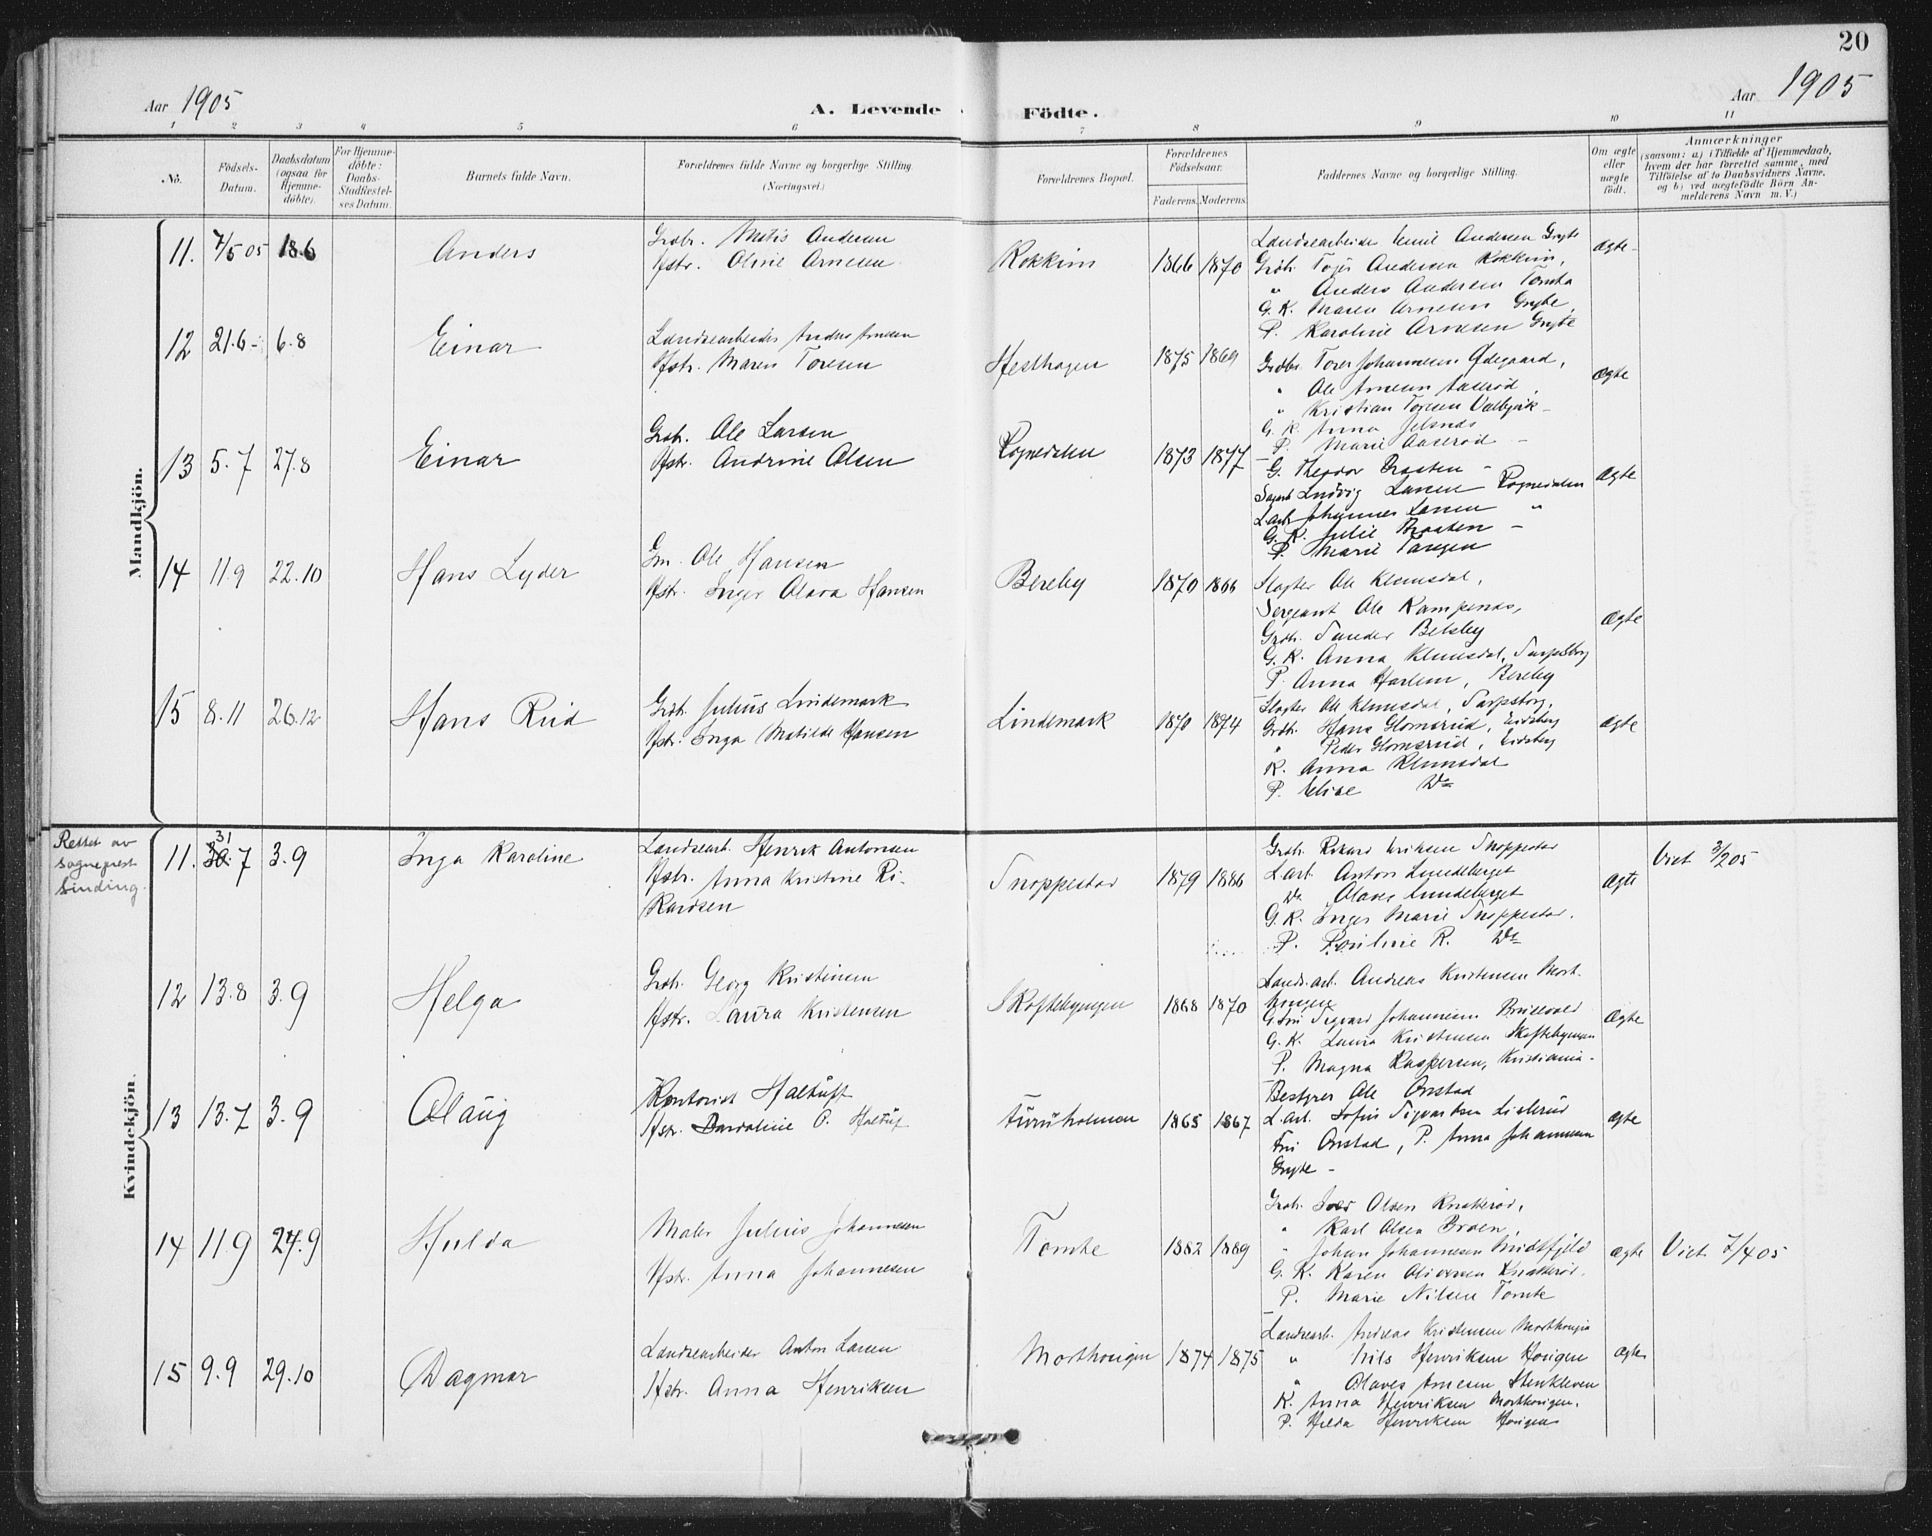 20
Aar 1905
A. Levende Födte.
Aar 1905
1 2 3 4 5 6 7 8 9 10 11
No.
Födsels-Datum.
Daabsdatum (ogsaa for Hjemme-döbte).
For Hjemme-döbte: Daabs-Stadfæstel-ses Datum.
Barnets fulde Navn.
Forældrenes fulde Navne og borgerlige Stilling. (Næringsvei.)
Forældrenes Bopæl.
Forældrenes Födselsaar.
Faderens. Moderens.
Faddernes Navne og borgerlige Stilling.
Om ægte eller uægte födt.
Anmærkninger
(saasom: a) i Tilfælde af Hjemmedaab, hvem der har forrettet samme, med Tilföielse af to Daabsvidners Navne, og b) ved uægtefödte Börn An-melderens Navn m. V.)
Mandkjön.
11. 7/5 05 18.6 Anders
Grdbr. Matis Andersen
Hstr. Oline Arnesen
Kokkim 1866 1870
Landsearbeider Emil Andersen Gryte
Grdbr. Andersen Kokkim,
" Anders Andersen Tomta
G. K. Maren Arnesen Gryte,
P. Karoline Arnesen Gryte
ægte
12 21.6 6.8 Einar
Landsearbeider Anders Arnesen
Hstr. Maren Toresen
Hesthagen 1875 1869
Grdbr. Tores Johannesen Ødegaard,
" Ole Arnesen Aaserød,
" Kristian Toresen
G. K. Anna
P. Marie Aaserød
ægte
13 5.7 27.8 Einar
Grdb. Ole Larsen
Hstr. Andrine Olsen
Rognedalen 1873 1877
G. Theodor Braaten
Ludvig Larsen Rognedalen
L.arb. Johannes Larsen "
G. K. Julie Braaten
P. Marie Tangen
ægte
14 11.9 22.10 Hans Lyder
Gm. Ole Hansen
Hstr. Inger Olava Hansen
Bereby 1870 1866
Slagter Ole Klemsdal,
Sergeant Ole Kampenæs,
Grdb. Sander Belsby
G. K. Anna Klemsdal, Sarpsborg
P. Anna Harlem, Bereby
ægte
15 8.11 26.12 Hans Riid
Grdb. Julius Lindemark
Hstr. Inga Matilde Hansen
Lindemark 1870 1874
Slagter Ole Klemsdal, Sarpsborg,
Grdb. Hans Glomsrud, Eidsberg
" Peder Glomsrud, Eidsberg
K. Anna Klemsdal
P. Elise Do
ægte
Kvindekjön.
Rettet av
sogneprest
Sinding.
11. 31
30.7 3.9 Inga Karoline
Landsearb. Henrik Antonsen
Hstr. Anna Kristine Ri-
kardsen
Snoppestad 1879 1886
Grdb. Rikard Eriksen Snoppestad
L.arb. Anton Lundeberget
Do Olaves Lundeberget
G. K. Inger Marie Snoppestad.
P. Pauline R. Do
ægte
Viet 3/2 05
12 13.8 3.9 Helga
Grdb. Georg Kristensen
Hstr. Laura Kristensen
Skoftebyengen 1868 1870
Lands.arb. Andreas Kristensen Mort-
hougen
Sigvard Johannesen
G. K. Laura Kristensen Skoftebyengen
P. Magna Kaspersen, Kristiania.
ægte
13 13.7 3.9 Olaug
Kontorist Haltuft
Hstr. O. Haltuf
Furuholmen 1865 1867
Bestyrer Ole Onstad
L.arb. Sofus Sigvardsen Listerud
Fru Onstad, P. Anna Johannesen
Grytte
ægte
14 11.9 24.9 Hulda
Maler Julius Johannesen
Hstr. Anna Johannesen
Tomte 1882 1889
Grdb. Iver Olsen Knatterød,
" Karl Olsen Broen,
" Johan Johannesen Midtfjeld
G. K. Karen Oliversen Knatterød.
P. Marie Nilsen Tomte
ægte
Viet 7/4 05
15 9.9 29.10 Dagmar
Landsearbeider Anton Larsen
Hstr. Anna Henriksen
Morthougen 1874 1875
Landsearb. Andreas Kristensen Morthougen
" Nils Henriksen Hougene
" Olaves Arnesen Stenkleven
K. Anna Henriksen Morthougen.
P. Hilda Henriksen Hougene
ægte